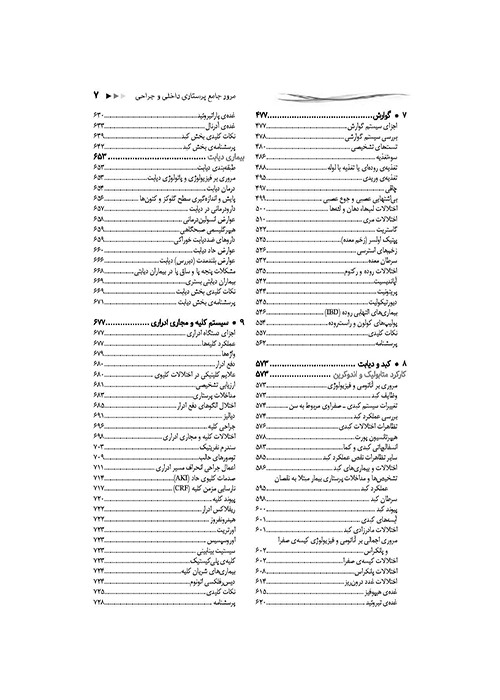 مرور جامع پرستاری داخلی و جراحی ۷
۷ • گوارش ... ۴۷۷
اجزای سیستم گوارش ... ۴۷۷
بررسی سیستم گوارشی ... ۴۷۸
تست‌های تشخیصی ... ۴۸۰
سوءتغذیه ... ۴۸۶
تغذیه‌ی روده‌ای یا تغذیه با لوله ... ۴۸۸
تغذیه‌ی وریدی ... ۴۹۵
چاقی ... ۴۹۷
بی‌اشتهایی عصبی و جوع عصبی ... ۴۹۹
اختلالات لب‌ها، دهان و لثه‌ها ... ۵۰۰
اختلالات مری ... ۵۱۰
گاستریت ... ۵۲۲
پپتیک اولسر (زخم معده) ... ۵۲۵
زخم‌های استرسی ... ۵۲۶
سرطان معده ... ۵۳۲
اختلالات روده و رکتوم ... ۵۳۵
آپاندیسیت ... ۵۴۲
پریتونیت ... ۵۴۴
دیورتیکولیت ... ۵۴۵
بیماری‌های التهابی روده (IBD) ... ۵۴۶
پولیپ‌های کولون و راست‌روده ... ۵۵۴
نکات کلیدی ... ۵۵۷
پرسشنامه ... ۵۶۲
۸ • کبد و دیابت ... ۵۷۳
کارکرد متابولیک و اندوکرین ... ۵۷۳
مروری بر آناتومی و فیزیولوژی ... ۵۷۳
وظایف کبد ... ۵۷۳
تغییرات سیستم کبدی ـ صفراوی مربوط به سن ... ۵۷۴
بررسی عملکرد کبد ... ۵۷۴
تظاهرات اختلالات کبدی ... ۵۷۶
هیپرتانسیون پورت ... ۵۷۸
انسفالوپاتی کبدی و کما ... ۵۸۳
سایر تظاهرات نقص عملکرد کبد ... ۵۸۵
اختلالات و بیماری‌های کبد ... ۵۸۶
تشخیص‌ها و مداخلات پرستاری بیمار مبتلا به نقصان
عملکرد کبد ... ۵۹۵
سرطان کبد ... ۵۹۸
پیوند کبد ... ۶۰۰
آبسه‌های کبدی ... ۶۰۱
اختلالات مادرزادی کبد ... ۶۰۱
مروری اجمالی بر آناتومی و فیزیولوژی کیسه‌ی صفرا
و پانکراس ... ۶۰۲
اختلالات کیسه‌ی صفرا ... ۶۰۲
اختلالات پانکراس ... ۶۰۸
اختلالات غدد درون‌ریز ... ۶۱۴
غده‌ی هیپوفیز ... ۶۱۵
غده‌ی تیروئید ... ۶۲۰
غده‌ی پاراتیروئید ... ۶۳۰
غده‌ی آدرنال ... ۶۳۳
نکات کلیدی بخش کبد ... ۶۳۹
پرسشنامه‌ی بخش کبد ... ۶۴۲
بیماری دیابت ... ۶۵۳
طبقه‌بندی دیابت ... ۶۵۳
مروری بر فیزیولوژی و پاتولوژی دیابت ... ۶۵۳
درمان دیابت ... ۶۵۴
پایش و اندازه‌گیری سطح گلوکز و کتون‌ها ... ۶۵۶
دارودرمانی در دیابت ... ۶۵۷
عوارض انسولین‌درمانی ... ۶۵۸
هیپرگلیسمی صبحگاهی ... ۶۵۹
داروهای ضددیابت خوراکی ... ۶۵۹
عوارض حاد دیابت ... ۶۶۰
عوارض بلندمدت (دیررس) دیابت ... ۶۶۶
مشکلات پنجه پا و ساق پا در بیماران دیابتی ... ۶۶۸
بیماران دیابتی بستری ... ۶۶۹
نکات کلیدی بخش دیابت ... ۶۶۹
پرسشنامه‌ی بخش دیابت ... ۶۷۱
۹ • سیستم کلیه و مجاری ادراری ... ۶۷۷
اجزای دستگاه ادراری ... ۶۷۷
عملکرد کلیه‌ها ... ۶۷۷
واژه‌ها ... ۶۷۹
دفع ادرار ... ۶۸۰
علایم کلینیکی در اختلالات کلیوی ... ۶۸۰
ارزیابی تشخیصی ... ۶۸۱
مداخلات پرستاری ... ۶۸۳
اختلال الگوهای دفع ادرار ... ۶۸۵
دیالیز ... ۶۹۱
جراحی کلیه ... ۶۹۶
اختلالات کلیه و مجاری ادراری ... ۶۹۸
سندرم نفریتیک ... ۷۰۳
تومورهای حالب ... ۷۰۹
اعمال جراحی انحراف مسیر ادراری ... ۷۱۱
صدمات کلیوی حاد (AKI) ... ۷۱۴
نارسایی مزمن کلیه (CRF) ... ۷۱۷
پیوند کلیه ... ۷۲۰
ریفلاکس ادرار ... ۷۲۲
هیدرونفروز ... ۷۲۲
اورتریت ... ۷۲۳
اوروسپسیس ... ۷۲۳
سیستیت بینابینی ... ۷۲۳
کلیه‌ی پلی‌کیستیک ... ۷۲۳
بیماری‌های شریان کلیه ... ۷۲۴
دیس‌رفلکسی اتونوم ... ۷۲۴
نکات کلیدی ... ۷۲۵
پرسشنامه ... ۷۲۸